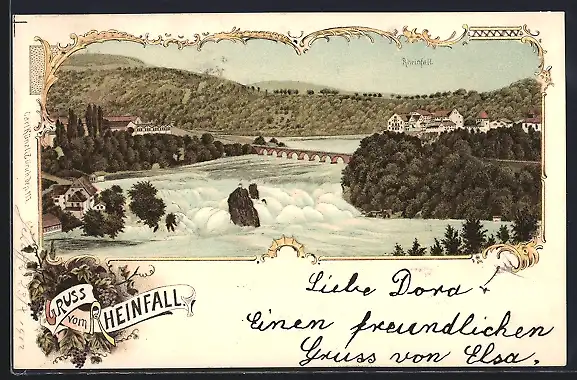 Rheinfall.
GRUSS
vom RHEINFALL
Liebe Dora!
Einen freundlichen
Gruss von Elsa.